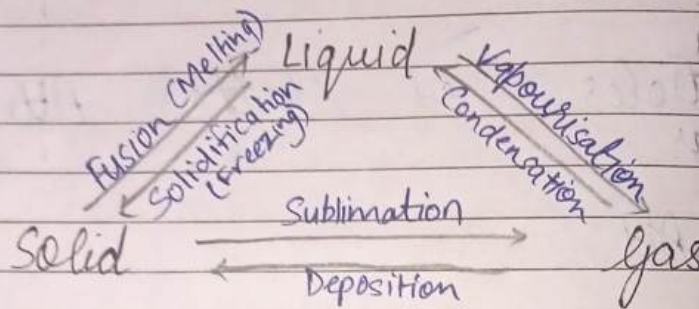 Liquid
Fusion (Melting)
Solidification
(Freezing)
Vapourisation
Condensation
Sublimation
Solid
Gas
Deposition